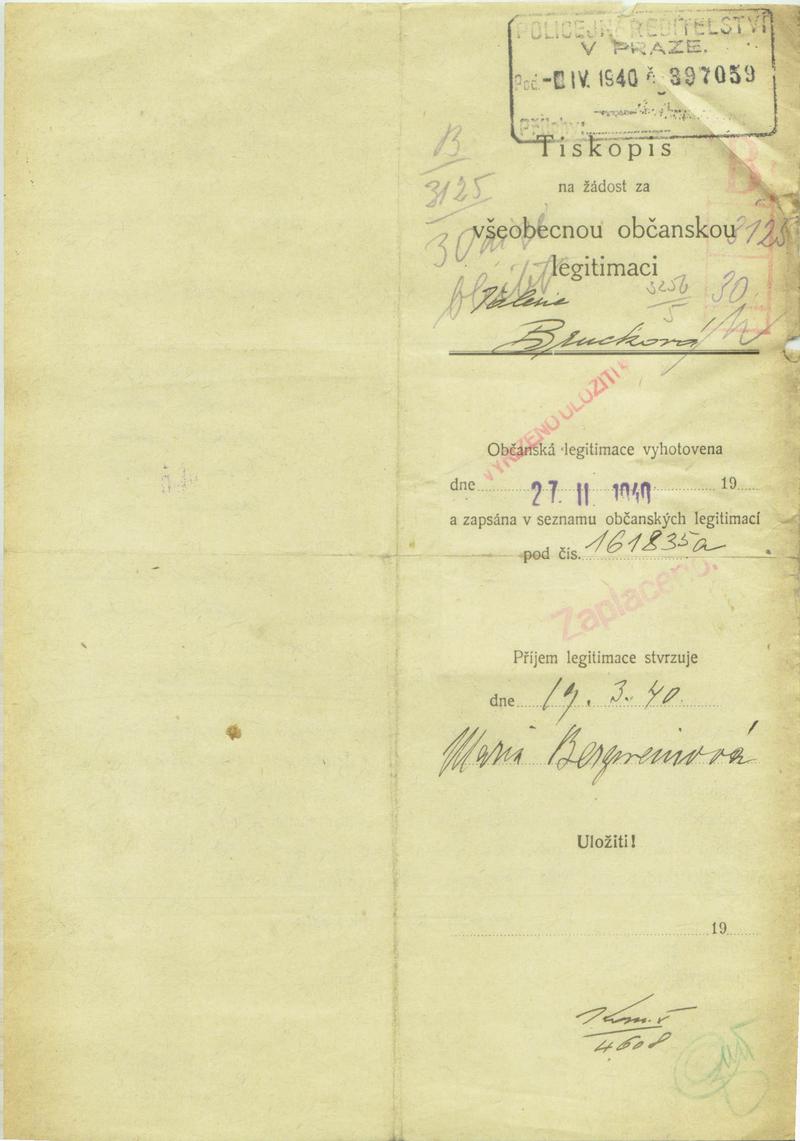 POLICEJNÍ ŘEDITELSTVÍ
V PRAZE.
Pod. IV. 1940 č 397059
Přílohy:
Tiskopis
na žádost za
všeobecnou občanskou
legitimaci
B
3125
30
3125
30
Brucková
VYŘÍZENO ULOŽITI
Občanská legitimace vyhotovena
dne 27. II 1940 19
a zapsána v seznamu občanských legitimací
pod čís. 161835a
Zaplaceno.
Příjem legitimace stvrzuje
dne 19. 3. 40.
Maria
Uložiti!
19
4608